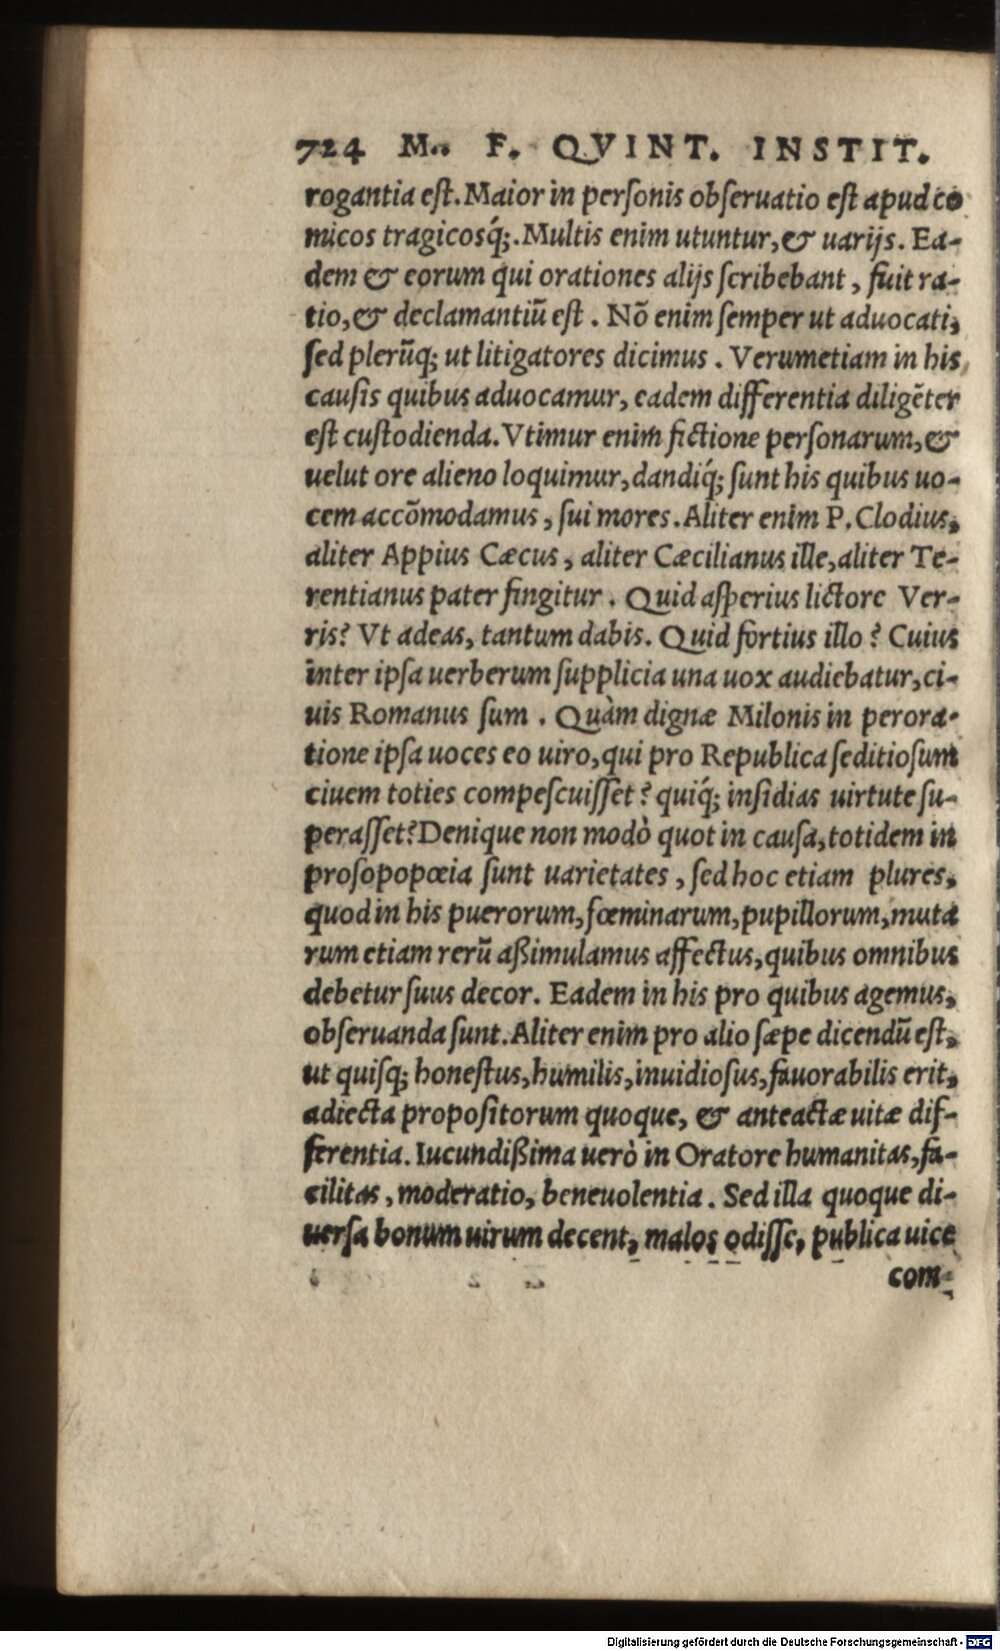 724 M. F. QVINT. INSTIT.
rogantia eſt. Maior in perſonis obſeruatio eſt apud co
micos tragicosq́;. Multis enim utuntur, & uarijs. Ea-
dem & eorum qui orationes alijs ſcribebant, fuit ra-
tio, & declamantiũ eſt. Nõ enim ſemper ut aduocati,
ſed plerũq; ut litigatores dicimus. Verumetiam in his
cauſis quibus aduocamur, eadem differentia diligẽter
eſt cuſtodienda. Vtimur enim fictione perſonarum, &
uelut ore alieno loquimur, dandiq́; ſunt his quibus uo-
cem accõmodamus, ſui mores. Aliter enim P. Clodius,
aliter Appius Cæcus, aliter Cæcilianus ille, aliter Te-
rentianus pater fingitur. Quid aſperius lictore Ver-
ris? Vt adeas, tantum dabis. Quid fortius illo? Cuius
inter ipſa uerberum ſupplicia una uox audiebatur, ci-
uis Romanus ſum. Quàm dignæ Milonis in perora-
tione ipſa uoces eo uiro, qui pro Republica ſeditioſum
ciuem toties compeſcuiſſet? quiq́; inſidias uirtute ſu-
peraſſet? Denique non modò quot in cauſa, totidem in
proſopopœia ſunt uarietates, ſed hoc etiam plures,
quod in his puerorum, fœminarum, pupillorum, muta
rum etiam rerũ aßimulamus affectus, quibus omnibus
debetur ſuus decor. Eadem in his pro quibus agemus,
obſeruanda ſunt. Aliter enim pro alio ſæpe dicendũ eſt,
ut quiſq; honeſtus, humilis, inuidioſus, fauorabilis erit,
adiecta propoſitorum quoque, & anteactæ uitæ dif-
ferentia. Iucundißima uerò in Oratore humanitas, fa-
cilitas, moderatio, beneuolentia. Sed illa quoque di-
uerſa bonum uirum decent, malos odiſſe, publica uice
com-
Digitalisierung gefördert durch die Deutsche Forschungsgemeinschaft - DFG